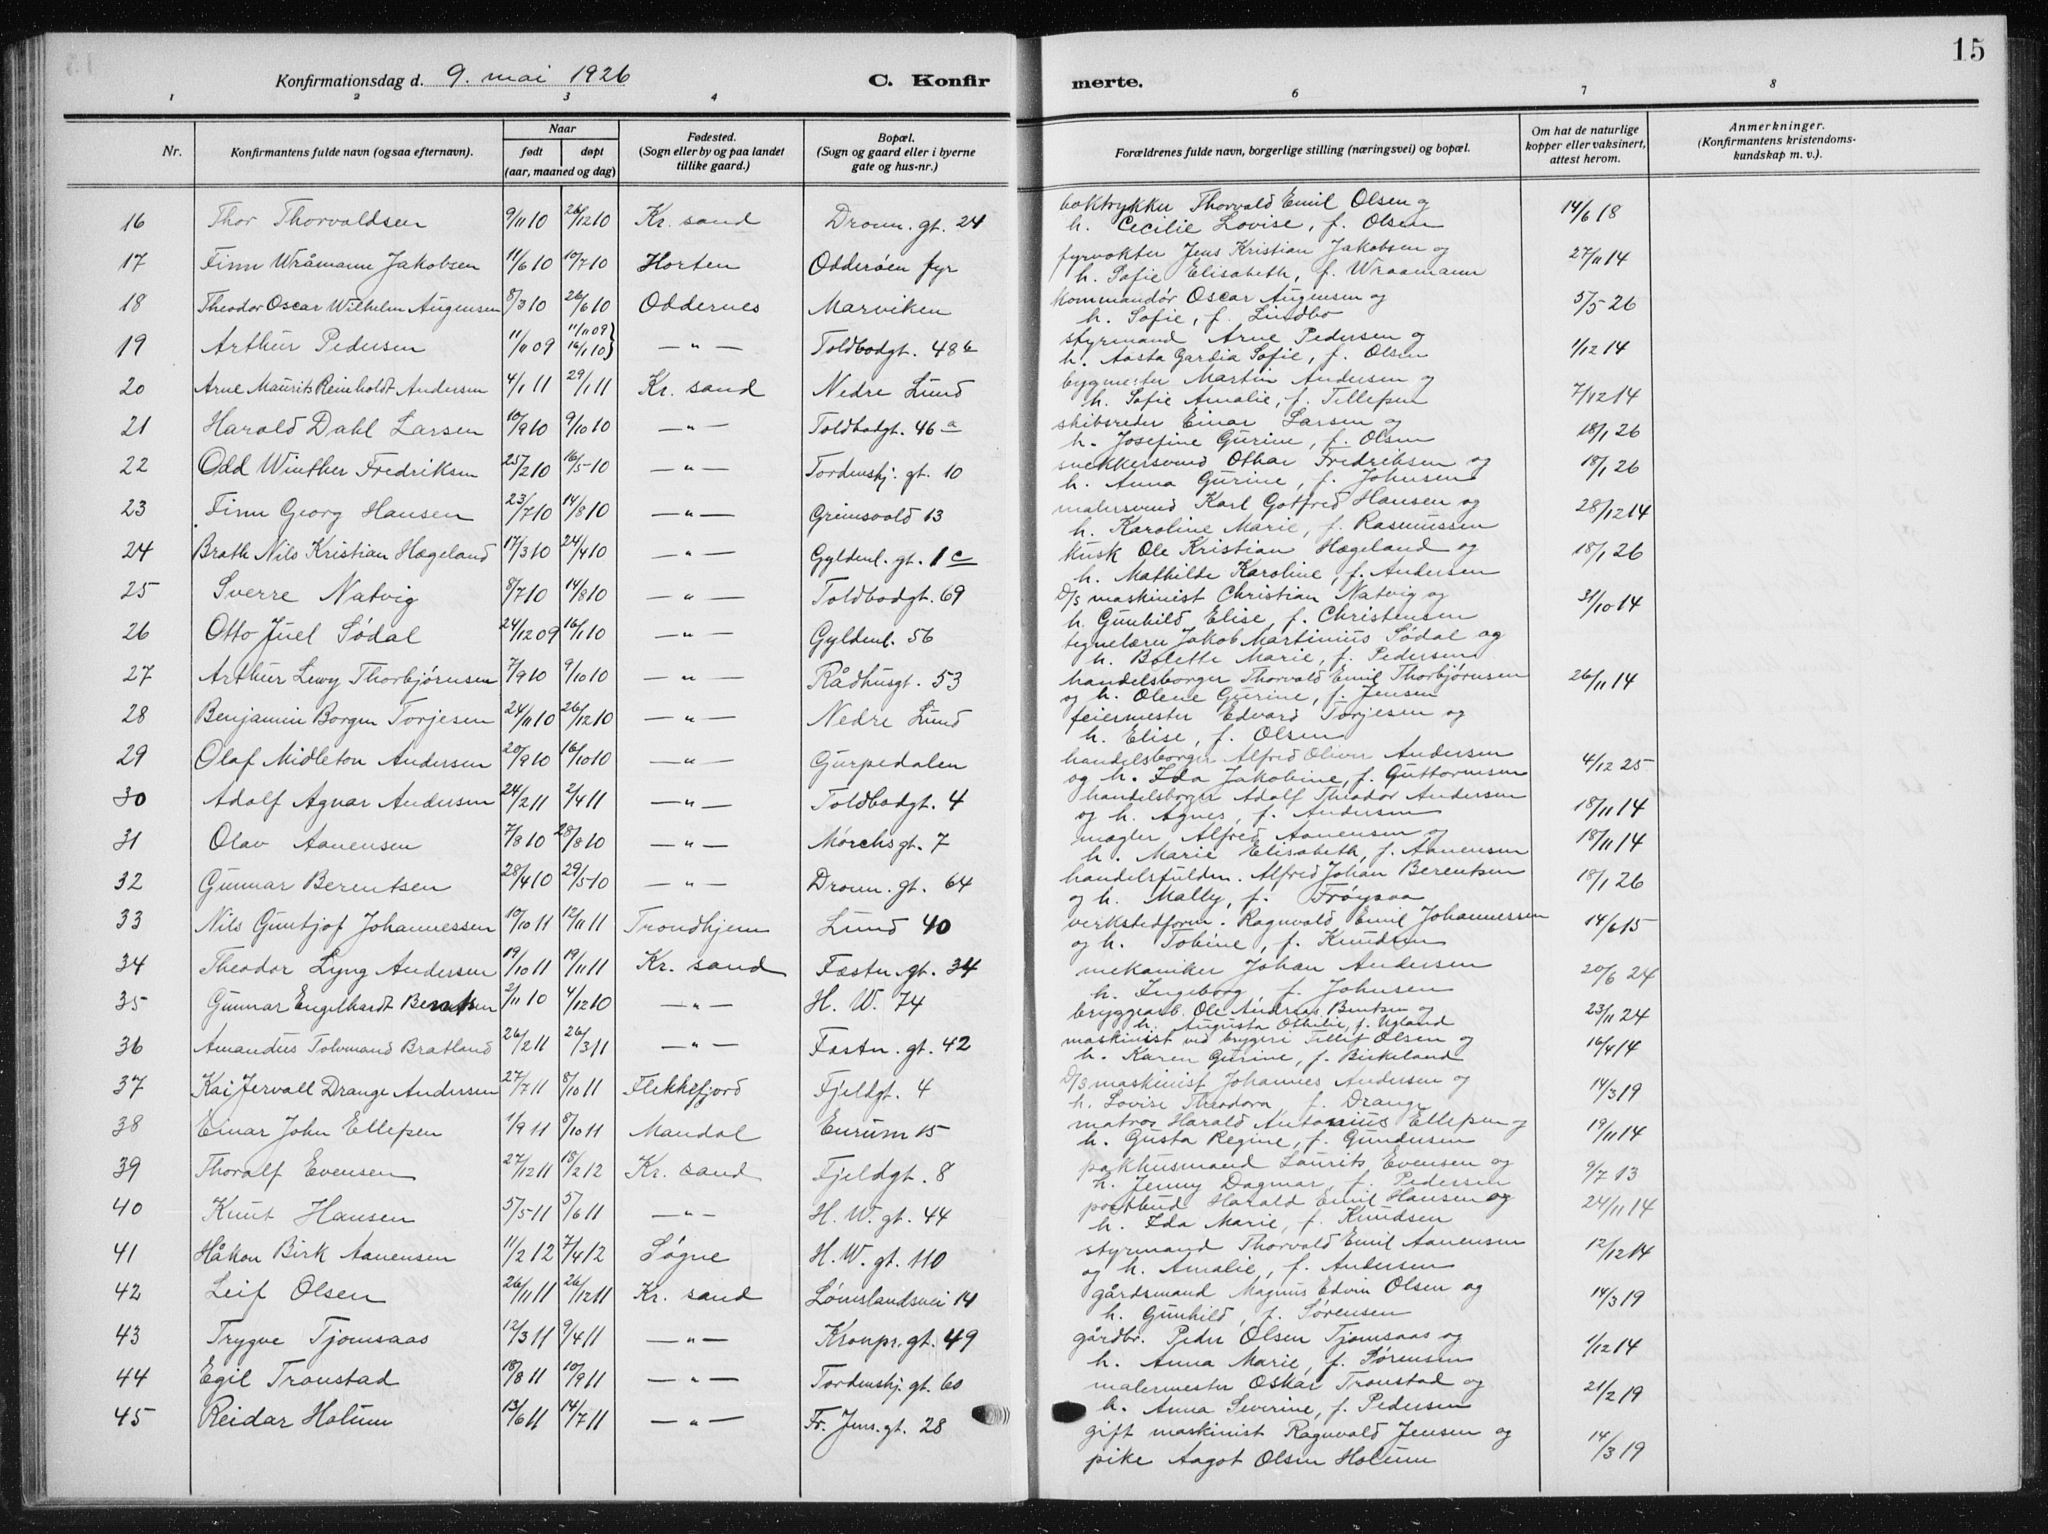 15
Konfirmationsdag d. 9. mai 1926 C. Konfir merte.
1 2 3 4 6 7 8
Nr. Konfirmantens fulde navn (ogsaa efternavn). Naar født døpt (aar, maaned og dag) Fødested. (Sogn eller by og paa landet tillike gaard.) Bopæl. (Sogn og gaard eller i byerne gate og hus-nr.) Forældrenes fulde navn, borgerlige stilling (næringsvei) og bopæl. Om hat de naturlige kopper eller vaksinert, attest herom. Anmerkninger. (Konfirmantens kristendoms-kundskap m. v.).
16 Thor Thorvaldsen 9/11 10 26/12 10 Kr. sand Dronn. gt. 24 boktrykker Thorvald Emil Olsen og 14/6 18
h. Cecilie Lovise, f. Olsen
17 Finn Wråmann Jakobsen 11/6 10 10/7 10 Horten Odderøen fyr fyrvokter Jens Kristian Jakobsen og 27/11 14
h. Sofie Elisabeth, f. Wraamann
18 Theodor Oscar Wilhelm Augensen 8/3 10 26/6 10 Oddernes Marviken kommandør Oscar Augensen og 5/5 26
h. Sofie, f. Lindbo
19 Arthur Pedersen 11/11 09 11/11 09 16/1 10 } — " — Toldbodgt. 48 b styrmand Arne Pedersen og 1/12 14
h. Aasta Gardia Sofie, f. Olsen
20 Arne Maurits Reinholdt Andersen 4/1 11 29/1 11 Kr. sand Nedre Lund bygmester Martin Andersen og 7/12 14
h. Sofie Amalie, f. Tellefsen
21 Harald Dahl Larsen 10/9 10 9/10 10 — " — Toldbodgt. 46 a skibsreder Einar Larsen og 18/1 26
h. Josefine Gurine, f. Olsen
22 Odd Winther Fredriksen 25/2 10 16/5 10 — " — Tordenskj. gt. 10 snekkersvend Othar Fredriksen og 18/1 26
h. Anna Gurine, f. Johnsen
23 Finn Georg Hansen 23/7 10 14/8 10 — " — Grimsvold 13 malersvend Karl Gotfred Hansen og 28/12 14
h. Karoline Marie, f. Rasmussen
24 Brath Nils Kristian Hægeland 17/3 10 24/4 10 — " — Gyldenl. gt. 1 c kusk Ole Kristian Hægeland og 18/1 26
h. Mathilde Karoline, f. Andersen
25 Sverre Natvig 8/7 10 14/8 10 — " — Toldbodgt. 69 D/s maskinist Christian Natvig og 31/10 14
h. Gunhild Elise, f. Christensen
26 Otto Juel Sødal 24/12 09 16/1 10 — " — Gyldenl. 56 tegnelærer Jakob Martinius Sødal og
h. Bolette Marie, f. Pedersen
27 Arthur Lewy Thorbjørnsen 7/9 10 9/10 10 — " — Rådhusgt. 53 handelsborger Thorvald Emil Thorbjørnsen 26/11 14
og h. Olene Gurine, f. Jensen
28 Benjamin Borgen Torjesen 24/11 10 26/12 10 — " — Nedre Lund feiermester Edvard Torjesen og
h. Elise, f. Olsen
29 Olaf Midleton Andersen 20/9 10 16/10 10 — " — Gurpedalen handelsborger Alfred Oliver Andersen 4/12 25
og h. Ida Jakobine, f. Guttormsen
30 Adolf Agnar Andersen 24/2 11 2/4 11 — " — Toldbodgt. 4 handelsborger Adolf Theodor Andersen 18/11 14
og h. Agnes, f. Andersen
31 Olav Aanensen 7/8 10 28/8 10 — " — Mørchsgt. 7 mægler Alfred Aanensen og 18/11 14
h. Marie Elisabeth, f. Aanensen
32 Gunnar Berentsen 28/4 10 29/5 10 — " — Dronn. gt. 64 handelsfuldm. Alfred Johan Berentsen 18/1 26
og h. Mally, f. Frøysaa
33 Nils Guntjof Johannessen 10/10 11 12/11 11 Trondhjem Lund 40 verkstedform. Ragnvald Emil Johannessen 14/6 15
og h. Tobine, f. Knudsen
34 Theodor Lyng Andersen 19/10 11 19/11 11 Kr. sand Fæstn. gt. 34 mekaniker Johan Andersen 20/6 24
h. Ingeborg f. Johnsen
35 Gunnar Engelhardt Bentsen 2/11 10 4/12 10 — " — H. W. 74 bryggearb. Ole Andreas Bentsen og 23/11 24
h. Augusta Othilie, f. Ugland
36 Amandus Tolvmand Bratland 26/2 11 26/3 11 — " — Fæstn. gt. 42 maskinist ved brygeri Tellif Olsen og 16/4 14
h. Karen Gurine, f. Birkeland
37 Kai Jervall Drange Andersen 27/7 11 8/10 11 Flekkefjord Fjeldgt. 4 D/s maskinist Johannes Andersen og 14/3 19
h. Lovise Theodora f. Drange
38 Einar John Ellefsen 1/9 11 8/10 11 Mandal Enrum 15 matros Harald Antonius Ellefsen og 19/11 14
h. Gusta Regine, f. Gundersen
39 Thoralf Evensen 27/12 11 18/2 12 Kr. sand Fjeldgt. 8 pakhusmand Laurits Evensen og 9/7 13
h. Jenny Dagmar, f. Pedersen
40 Knut Hansen 5/5 11 5/6 11 — " — H. W. gt. 44 postbud Harald Emil Hansen og 24/11 14
h. Ida Marie, f. Knudsen
41 Håkon Birk Aanensen 11/2 12 7/4 12 Søgne H. W. gt. 110 styrmand Thorvald Emil Aanensen 12/12 14
og h. Amalie, f. Andersen
42 Leif Olsen 26/11 11 26/12 11 Kr. sand Lømslandsvei 14 gårdsmand Magnus Edvin Olsen og 14/3 19
h. Gunhild, f. Sørensen
43 Trygve Tjomsaas 12/3 11 9/4 11 — " — Kronpr. gt. 49 gårdbr. Peder Olsen Tjomsaas og 1/12 14
h. Anna Marie, f. Sørensen
44 Egil Tronstad 18/8 11 10/9 11 — " — Tordenskj. gt. 60 malermester Oskar Tronstad og 21/2 19
h. Anna Severine, f. Pedersen
45 Reidar Holum 13/6 11 14/7 11 — " — Fr. Jens. gt. 28 gift maskinist Ragnvald Jensen og 14/3 19
pike Aagot Olsen Holum